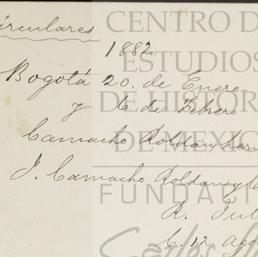 Circulares
1882
Bogotá 20 de Enero
y 6 de Febrero
Camacho Roldan
J. Camacho Roldan y C
R.
C. 12 Ago
CENTRO D
ESTUDIOS
DE HISTOR
DE MEXIC
FUNDACI
Carlos